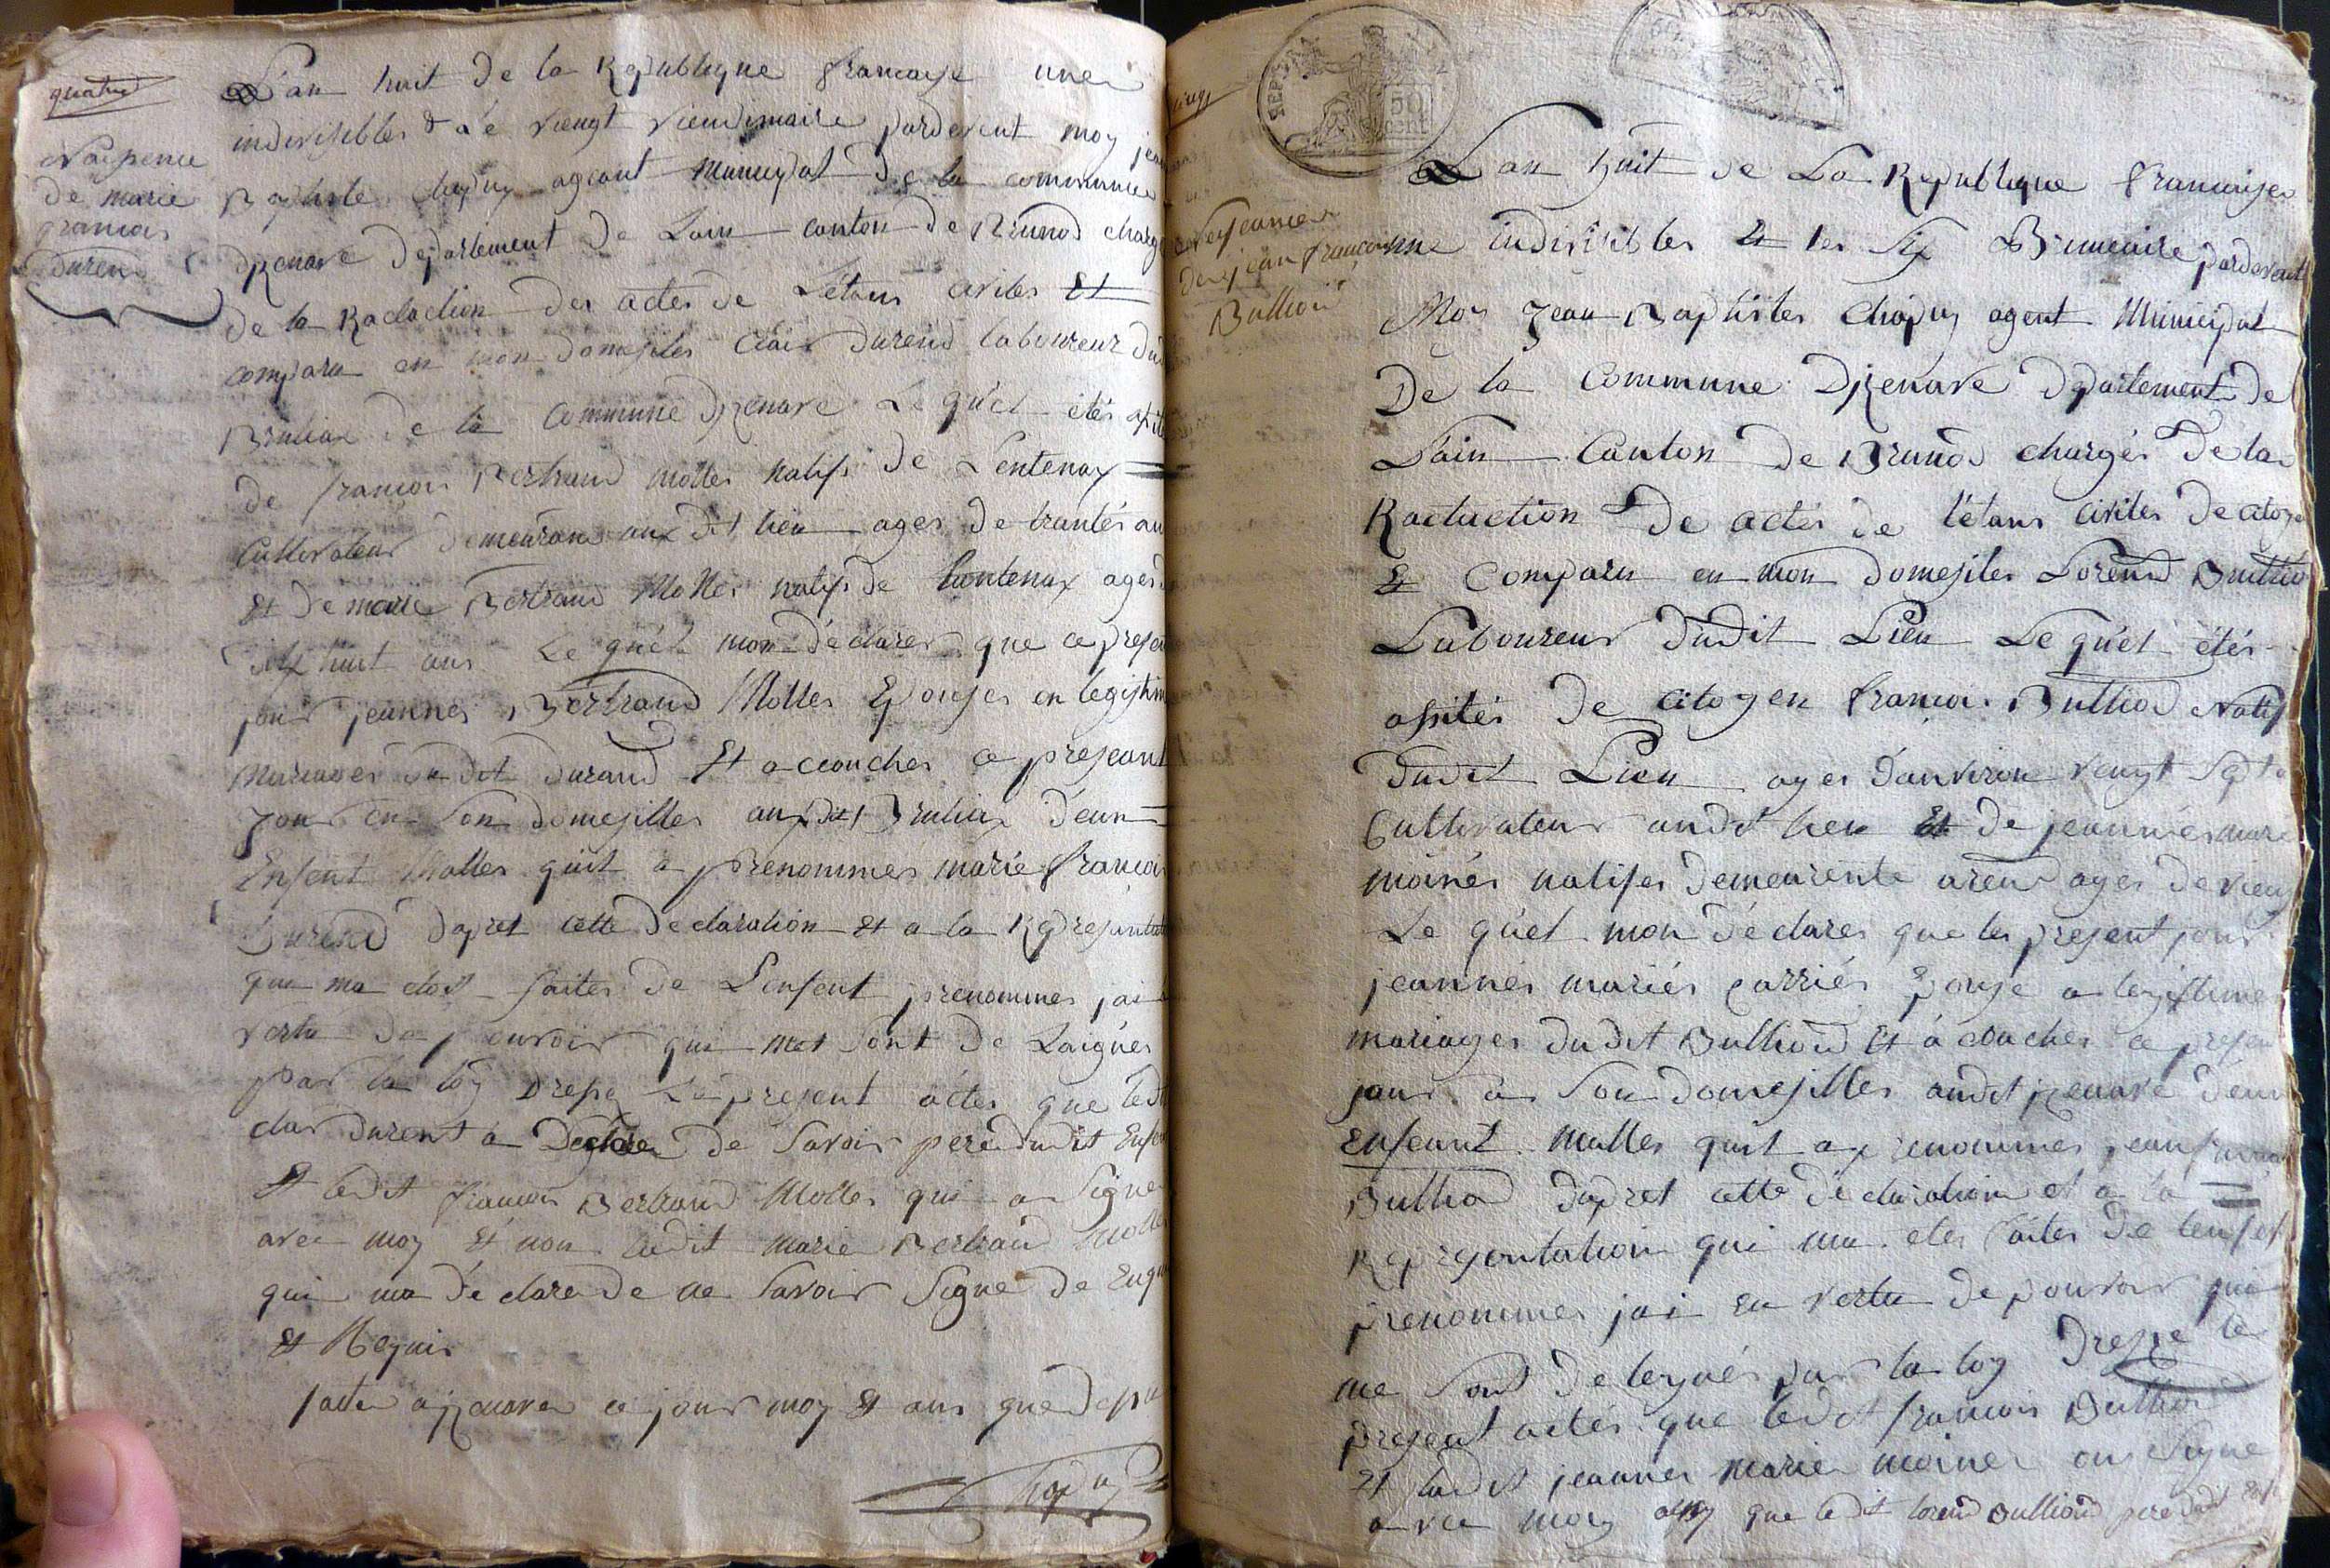 quatre
Naisence
de marie
francois
Durend
L'an huit de la Republique francaise une
indivisibles & Le viengt viendimaire pardevent moy jean
Baptiste Chapuy agеant Municipal De la commune
Dizenave Departement de Lain canton de Brunod charge
de la Radaction des actes de L'etans civiles Et
comparu en mon domesiles Clair Durend laboureur dud
Bruliax de la Commune Dizenave Le quel etés
de francois Bertrand molles natifs de Lentenax
Cultivateur demeurans aux dit lieu ages de trantés an
Et de marie Bertrand Molles natifs de Lantenax ages
dix huit ans Le quel mon déclares que ce presen
jour jeannes Bertrand Molles Epouses en legistim
mariages dudit Durand Et accouches ce preseant
jour en son domesilles aux dit Bruliax d'eun
Enfent Malles quit a prenommes marie francois
Durend Dapret cette declaration Et a la Represintat
que ma etes faites de L'enfent prenommes jai
vertu de pouvoir qui met sont de Laigués
par la loy Dresse Le present actes que ledit
clair Durent a Declare de Savoir pere dudit Enfen
Et ledit francois Bertrand Molles qui a Signe
avec moy Et non ladit marie Bertrand Molle
qui ma déclare de ne Savoir Signe de Enqui
Et Requis
faite a izenave ce jour moy Et ans que Depu
Chapuy
Nesseance
De jean francois
Bulliod
REP. FRA.
50 cent
L'an huit de La Republique francaises
une indivisibles Et les Six Brumaire pardevent
Moy Jean Baptistes Chapuy agent Municipal
De la Commune Dizenave Departement de
L'ain Canton de Brunod chargés De la
Radaction De actes de l'etans civiles De citoye
Et Comparu en mon domesiles Lorend Bullio
Laboureur Dudit Lieu Le quel étés
assités De citoyen francois Bulliod Natif
Dudit Lieu ages d'anviron vengt Sept
Cultivateur audit lieu Et De jeannes marie
moinés natifes Demeurente arend ages de vien
Le quel mon déclares que les present jour
jeannés mariés carriés Epouse a legistimes
mariages dudit Bulliod Et à couches ce presen
jour à Son domesilles audit izenave d'eun
Enfeant Malles quit a prenommes jean francois
Bulliod Dapret cette declaration et a la
Represontation qui ma etes faites De lenfent
prenommes jai En vertu De pouvoir qui
me sont De legués par la loy Dresse les
present actes que ledit francois Bulliod
Et ladit jeannes Marie moines ons Signe
avec moy que ledit lorend Bulliod pere dudit Enfe